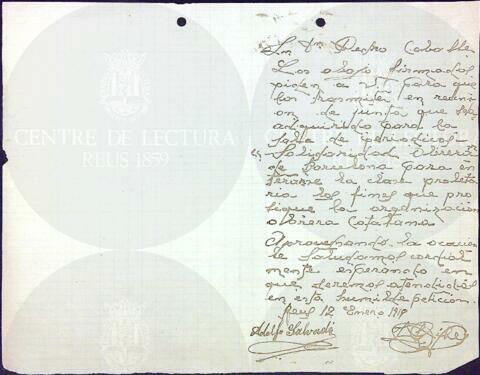 CENTRE DE LECTURA
REUS 1859
Sn Dn Pedro Caballé
Los abajo firmados
piden a Vd para que
los transmita en reuni
on de junta que sea
adquirido para la
sala de periodicos
"Solidaridad Obrera"
de Barcelona para en
terarse la clase proleta
ria los fines que pro
sigue la organización
obrera catalana
Aprovechando la ocasión
le saludamos cordial
mente esperando en
que seremos atendidos
en esta humilde petición.
Reus 12 Enero 191
Adolfo Salvadó